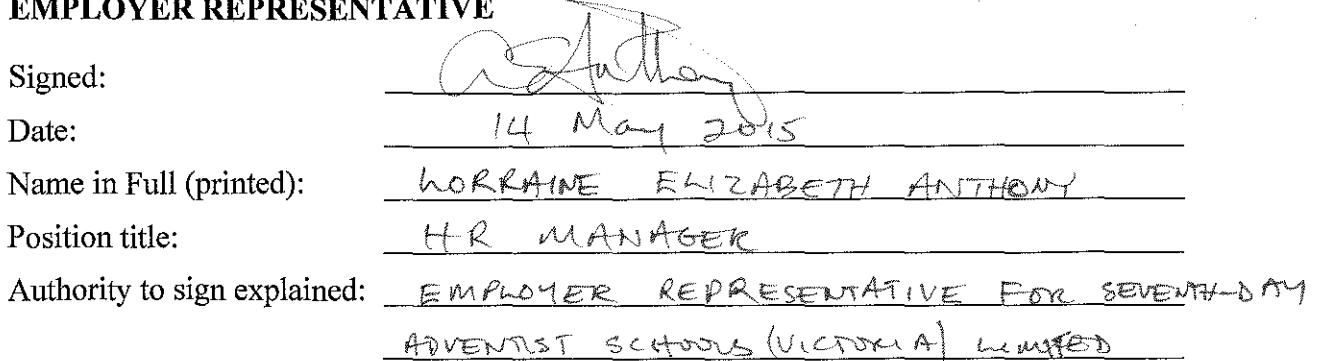 EMPLOYER REPRESENTATIVE
Signed: Anthony
Date: 14 May 2015
Name in Full (printed): LORRAINE ELIZABETH ANTHONY
Position title: HR MANAGER
Authority to sign explained: EMPLOYER REPRESENTATIVE FOR SEVENTH-DAY
ADVENTIST SCHOOLS (VICTORIA) LIMITED